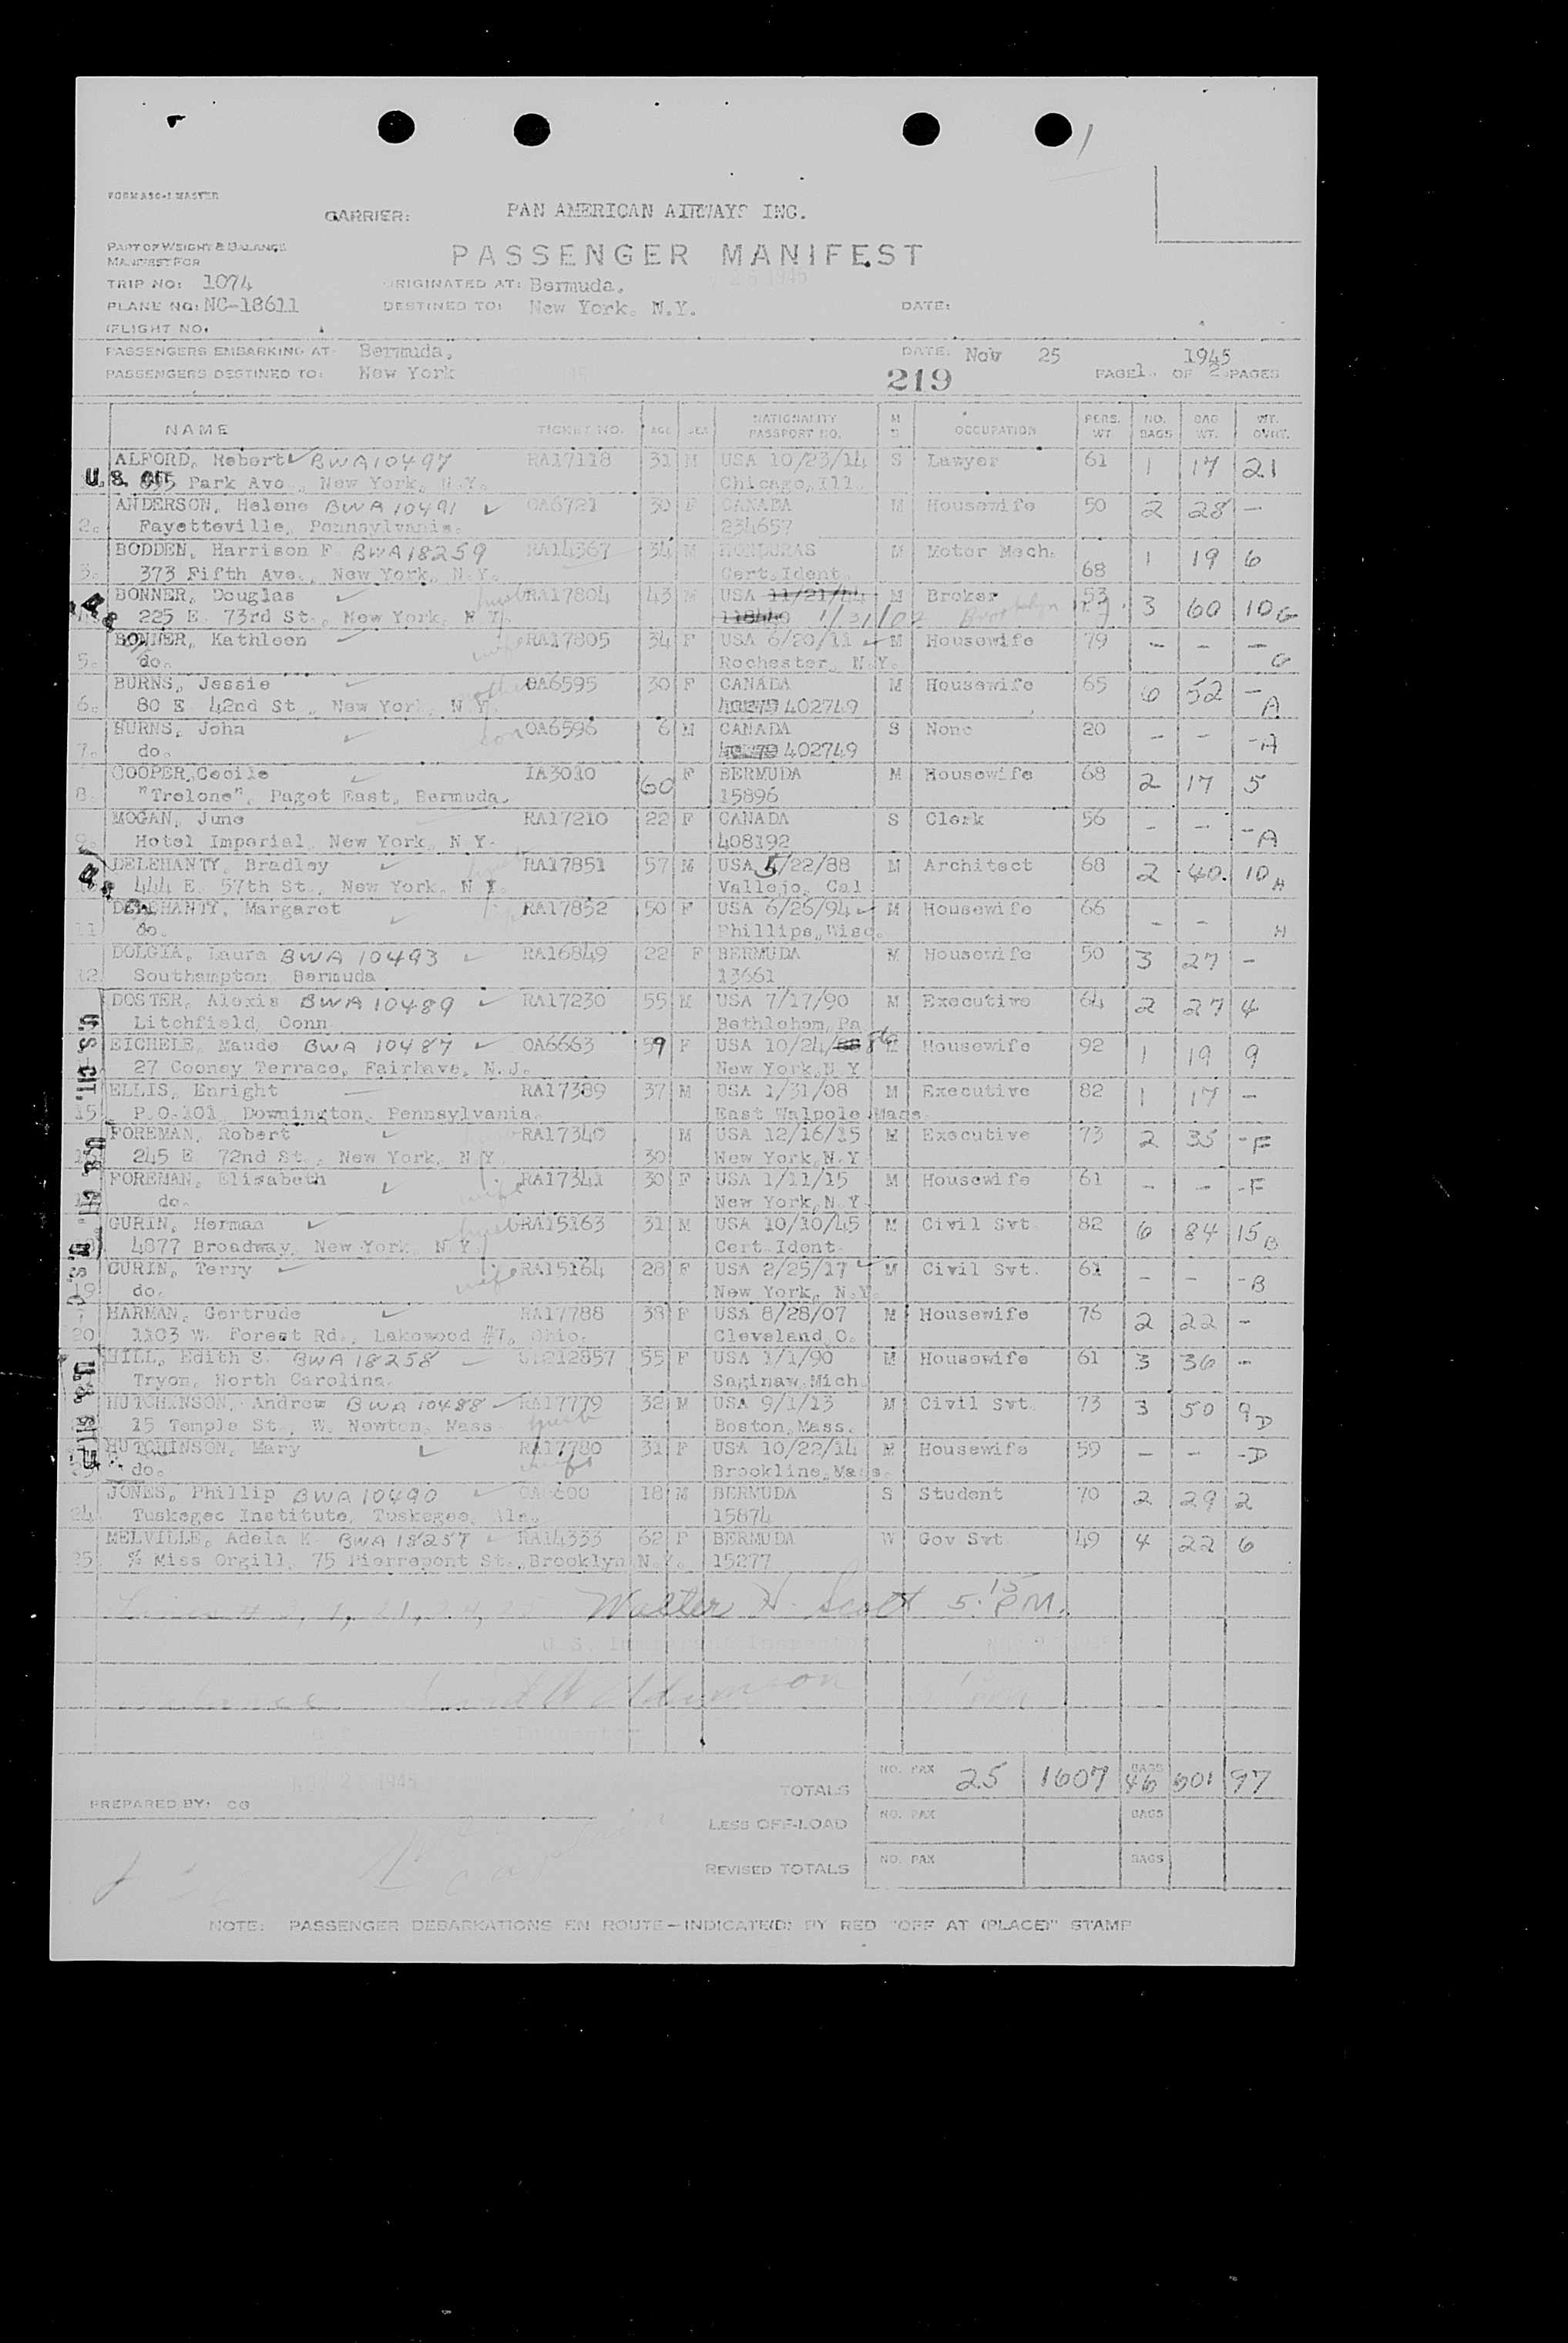 FORM ASC-1 MASTER
CARRIER: PAN AMERICAN AIRWAYS INC.
PART OF WEIGHT & BALANCE
MANIFEST FOR
PASSENGER MANIFEST
TRIP NO: 1074 ORIGINATED AT: Bermuda.
PLANE NO: NC-18611 DESTINED TO: New York. N.Y. DATE:
(FLIGHT NO.
PASSENGERS EMBARKING AT: Bermuda, DATE: Nov 25 1945
PASSENGERS DESTINED TO: New York 219 PAGE 1. OF 2 PAGES
NAME TICKET NO. AGE SEX NATIONALITY PASSPORT NO. M S OCCUPATION PERS. WT. NO. BAGS BAG WT. WT. OVRT.
ALFORD, Robert BWA10497 RA17118 31 M USA 10/23/14 S Lawyer 61 1 17 21
U.S. CIT. 895 Park Ave., New York, N.Y. Chicago, Ill.
ANDERSON, Helene BWA 10491 OA6721 30 F CANADA M Housewife 50 2 28 -
2. Fayetteville, Pennsylvania. 234657
BODDEN, Harrison F. BWA18259 RA14367 34 M HONDURAS M Motor Mech. 1 19 6
3. 373 Fifth Ave., New York, N.Y. Cert. Ident. 68
BONNER, Douglas husb RA17804 43 M USA 11/21/44 M Broker 53
225 E. 73rd St., New York, N.Y. 118440 1/31/02 Brooklyn N.Y. 3 60 10 G
BONNER, Kathleen wife RA17805 34 F USA 6/20/11 M Housewife 79 - - -
5. do. Rochester, N.Y. G
BURNS, Jessie mother OA6595 30 F CANADA M Housewife 65 6 52 -
6. 80 E. 42nd St., New York, N.Y. 402749 A
BURNS, John son OA6596 6 M CANADA S None 20 - - -A
7. do. 402749
COOPER, Cecile IA3010 60 F BERMUDA M Housewife 68 2 17 5
8. "Trelone", Paget East, Bermuda. 15896
MOGAN, June RA17210 22 F CANADA S Clerk 56 - - -A
9. Hotel Imperial, New York, N.Y. 408192
DELEHANTY, Bradley RA17851 57 M USA 5/22/88 M Architect 68 2 40 10 H
444 E. 57th St., New York, N.Y. Vallejo, Cal.
DELEHANTY, Margaret RA17852 50 F USA 6/26/94 M Housewife 66 - - H
11 do. Phillips, Wisc.
DOLGIA, Laura BWA 10493 RA16849 22 F BERMUDA M Housewife 50 3 27 -
12 Southampton, Bermuda 13661
DOSTER, Alexis BWA 10489 RA17230 55 M USA 7/17/90 M Executive 64 2 27 4
Litchfield, Conn. Bethlehem, Pa.
EICHELE, Maude BWA 10487 OA6663 59 F USA 10/24/86 M Housewife 92 1 19 9
27 Cooney Terrace, Fairhave, N.J. New York, N.Y.
ELLIS, Enright RA17389 37 M USA 1/31/08 M Executive 82 1 17 -
15 P.O. 101, Downington, Pennsylvania. East Walpole, Mass.
FOREMAN, Robert husb RA17340 M USA 12/16/15 M Executive 73 2 35 -F
245 E. 72nd St., New York, N.Y. 30 New York, N.Y.
FOREMAN, Elisabeth wife RA17341 30 F USA 1/11/15 M Housewife 61 - - -F
do. New York, N.Y.
GURIN, Herman husb RA15163 31 M USA 10/10/45 M Civil Svt. 82 6 84 15 B
4877 Broadway, New York, N.Y. Cert. Ident.
GURIN, Terry wife RA15164 28 F USA 2/25/17 M Civil Svt. 61 - - -B
19 do. New York, N.Y.
HARMAN, Gertrude RA17788 38 F USA 8/28/07 M Housewife 76 2 22 -
20 1103 W. Forest Rd., Lakewood #7, Ohio. Cleveland, O.
HILL, Edith S. BWA 18258 212857 55 F USA 1/1/90 M Housewife 61 3 36 -
Tryon, North Carolina. Saginaw, Mich.
HUTCHINSON, Andrew BWA 10488 RA17779 32 M USA 9/1/13 M Civil Svt. 73 3 50 9 D
15 Temple St., W. Newton, Mass. husb Boston, Mass.
HUTCHINSON, Mary RA17780 31 F USA 10/22/14 M Housewife 59 - - -D
do. wife Brookline, Mass.
JONES, Phillip BWA 10490 18 M BERMUDA S Student 70 2 29 2
24 Tuskegee Institute, Tuskegee, Ala. 15874
MELVILLE, Adela K. BWA 18257 RA14333 62 F BERMUDA W Gov Svt. 49 4 22 6
25 % Miss Orgill, 75 Pierrepont St., Brooklyn, N.Y. 15277
Walter H. Scott 5:15 PM.
U.S. Immigrant Inspector
NOV 25 1945
TOTALS NO. PAX 25 1607 BAGS 46 601 97
PREPARED BY: CG
LESS OFF-LOAD NO. PAX BAGS
REVISED TOTALS NO. PAX BAGS
NOTE: PASSENGER DEBARKATIONS EN ROUTE—INDICATE(D) BY RED "OFF AT (PLACE)" STAMP